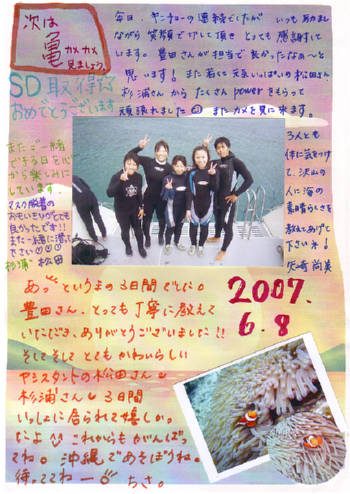 次は
亀カメカメ
見ましょう。
SD取得
おめでとうございます
毎日、ヤンチャーの連続でしたが いつもあわせ
ながら笑顔でけして頂き とっても感謝して
います。豊田さんが担当で良かったなぁ〜と
思います! また若くて元気いっぱいの松田さん
杉浦さんから たくさんpowerをもらって
頑張れました またカメを見に来ます。
3人とも
体に気をつけ
て、沢山の
人に海の
素晴らしさを
教えてあげて
下さいネ!
矢崎 尚美
またご一緒
できる日を心
から楽しみに
しています。
マスク脱着の
おもいきりがとても
良かったです!!
また一緒に潜って
下さい♡♡♡
杉浦 松田
あっというまの3日間でした。
豊田さん、とっても丁寧に教えて
いただき、ありがとうございました!!
そしてそして とてもかわいらしい
アシスタントの松田さん
杉浦さん 3日間
いっしょに居られて嬉しか
たよ これからもがんばっ
てね。沖縄であそぼうね。
待っててねー ちさ。
2007.
6.8